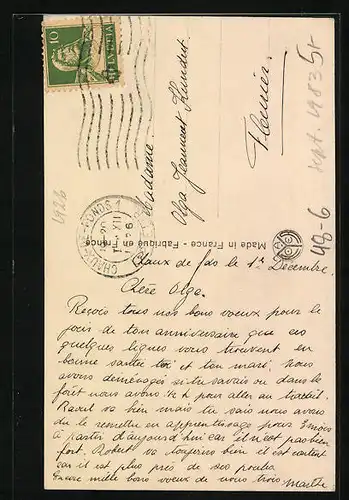 10
HELVETIA
Madame
Olga Jeanneret
Fleurier
Made in France - Fabriqué en France
1926
48-6
Chaux de fds le 1er Décembre.
Chère Olga.
Reçois tous nos bons voeux pour le
jour de ton anniversaire que ces
quelques lignes vous trouvent en
bonne santée toi et ton mari, Nous
avons demenagés si tu savais ou dans la
forêt nous avons ½ h pour aller au travail.
Raoul va bien mais tu sais nous avons
du le remettre en apprentissage pour 3 mois
à partir d'aujourd'hui car il n'est pas bien
fort. Robert va toujours bien il est content
car il est plus près de ses poules.
Encore mille bons voeux de nous trois Marthe